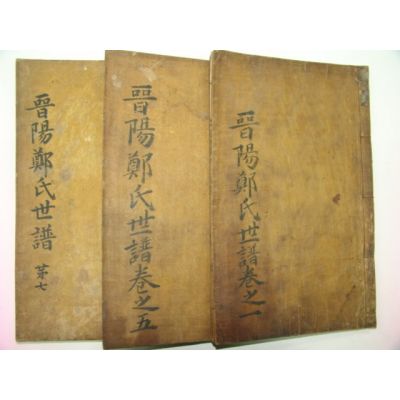 晉陽鄭氏世譜卷之一
晉陽鄭氏世譜卷之五
晉陽鄭氏世譜 苐七